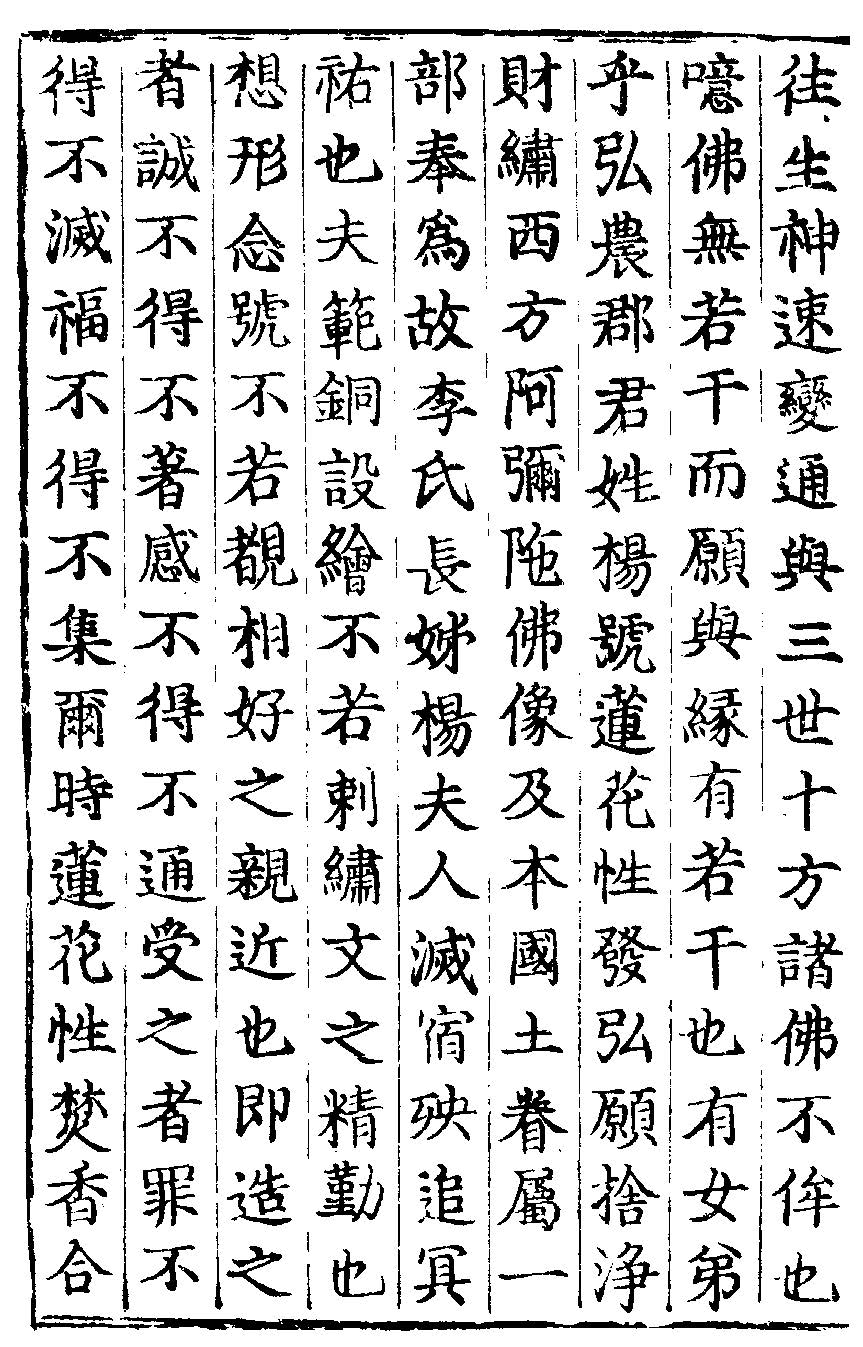 往生神速變通與三世十方諸佛不侔也
噫佛無若干而願與緣有若干也有女弟
乎弘農郡君姓楊號蓮花性發弘願捨淨
財繡西方阿彌陁佛像及本國土眷屬一
部奉爲故李氏長姊楊夫人滅宿殃追冥
祐也夫範銅設繪不若刺繡文之精勤也
想形念號不若覩相好之親近也即造之
者誠不得不著感不得不通受之者罪不
得不滅福不得不集爾時蓮花性焚香合